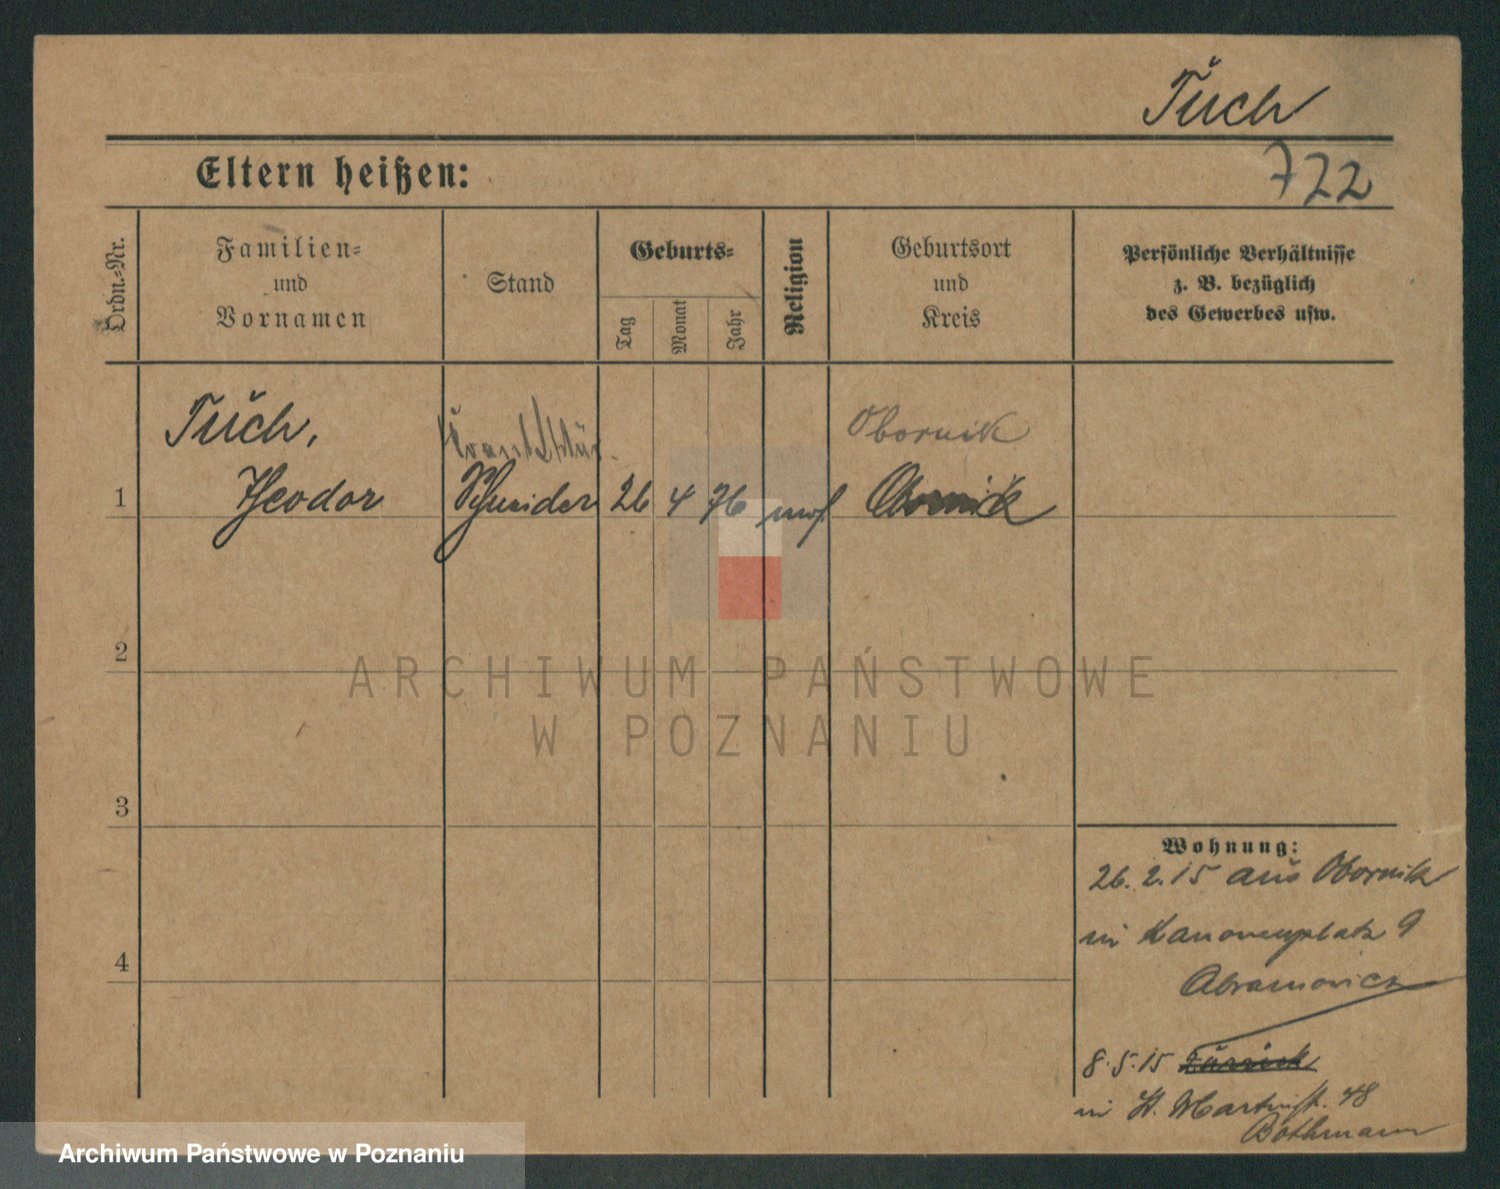 Tuch
722
Eltern heißen:
Ordn.-Nr.
Familien-
und
Vornamen
Stand
Geburts-
Tag
Monat
Jahr
Religion
Geburtsort
und
Kreis
Persönliche Verhältnisse
z. B. bezüglich
des Gewerbes usw.
Tuch,
Obornik
1
Theodor
Schneider
26
4
76
mos.
Obornik
2
ARCHIWUM PAŃSTWOWE
W POZNANIU
3
Wohnung:
26. 2. 15 aus Obornik
in Kanonenplatz 9
4
Abramowicz
8. 5. 15 zurück
in St. Martinstr. 48
Bothmann
Archiwum Państwowe w Poznaniu